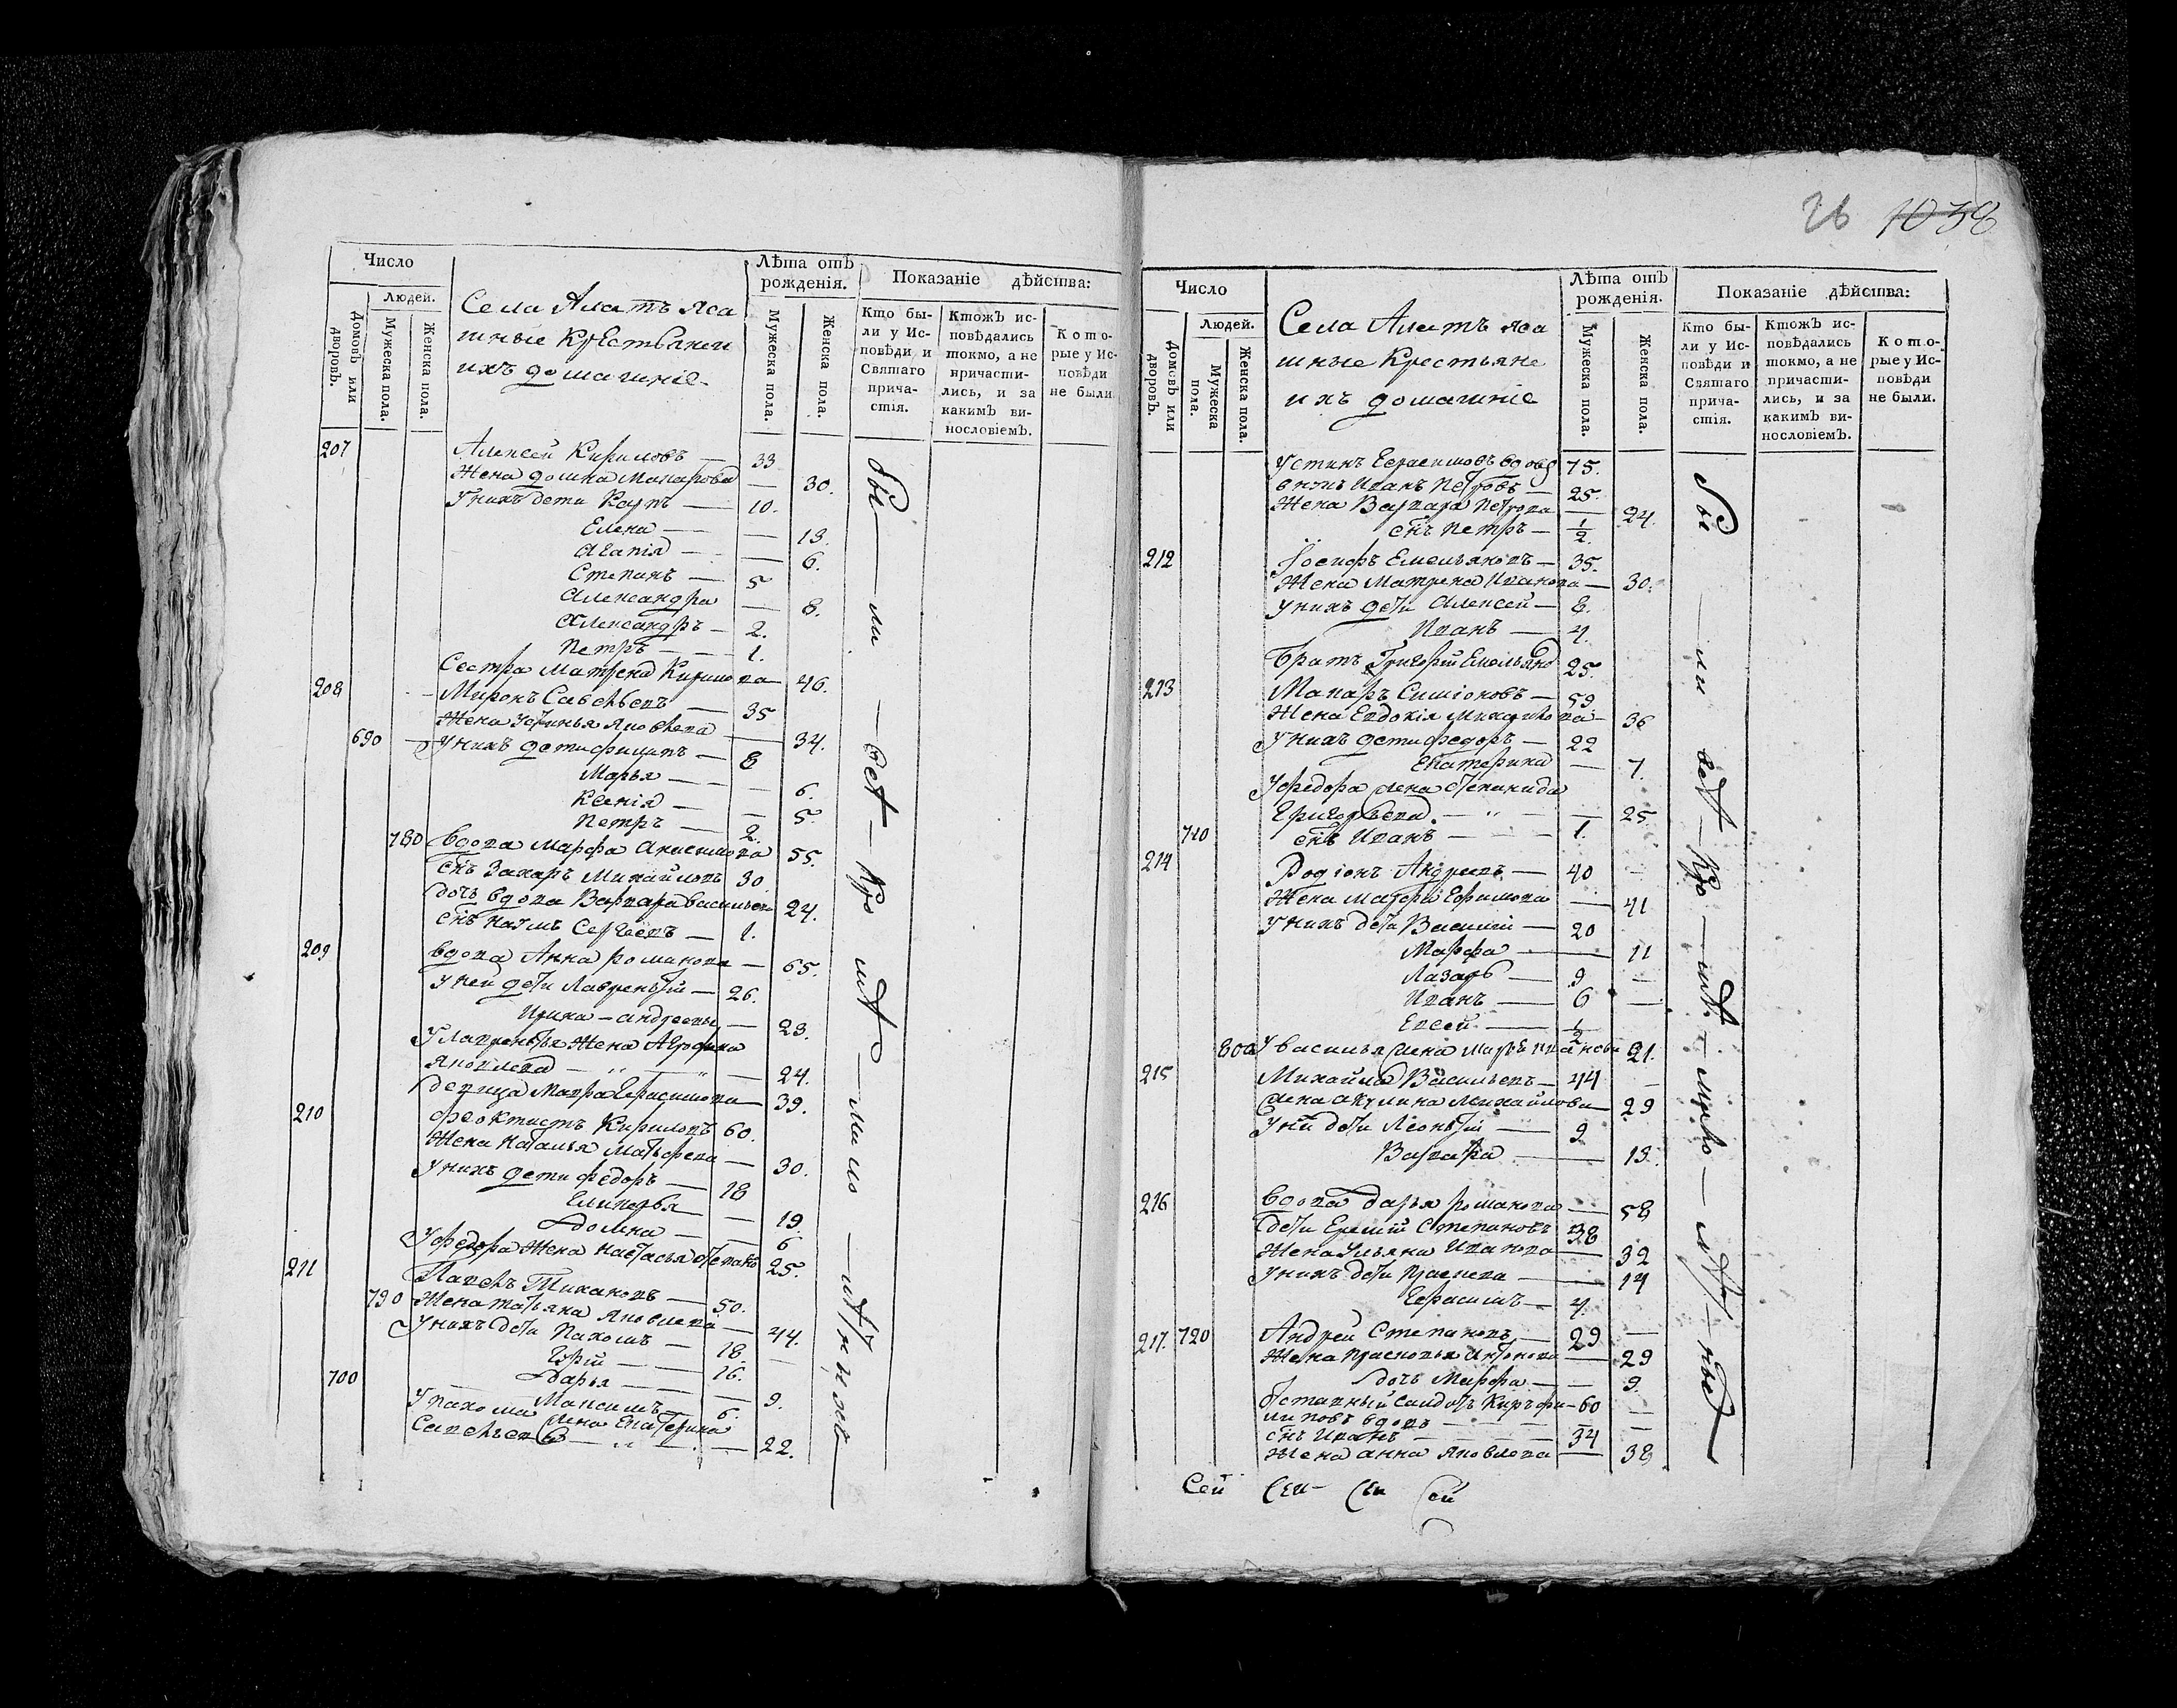 Число
Людей.
Домовъ или дворовъ.
Мужеска пола.
Женска пола.
Села Алатъ яса
шные крестьянеи
ихъ домашніе
Лѣта отъ рожденія.
Мужеска пола.
Женска пола.
Показаніе дѣйства:
Кто бы-
ли у Ис-
повѣди и
Святаго
прича-
стія.
Ктожъ ис-
повѣдались
токмо, а не
причасти-
лись, и за
какимъ ви-
нословіемъ.
Кото-
рые у Ис-
повѣди
не были.
207 Алексей Кириловъ — 33
Жена домна Макарова — 30.
У нихъ дети Карпъ — 10.
Елена — 13.
Агапія — 6.
Степанъ — 5
Александра — 8.
Александръ — 2.
Петръ — 1.
Сестра Матрена Кирилова 46.
208 Миронъ Савельевъ — 35
Жена Устинья Яковлева — 34.
690 У нихъ дети филипъ — 8
Марья — 6.
Ксенія — 5.
Петръ — 2.
780 вдова Марфа 55.
снъ Захаръ Михайловъ 30
дочь вдова Варвара васильева 24.
снъ Сергеевъ — 1.
209 вдова Анна романова — 65.
У ней дети Лаврентій — 26.
Ирина — андреевы — 23.
У лаврентья жена Агрофена
Яковлева — 24.
девица Мавра Герасимова 39.
210 феоктистъ Кириловъ 60.
Жена Наталья Матвеева — 30.
У нихъ дети федоръ — 18
19.
домна — 6
У федора жена настасья степано 25.
211 Павелъ Тихановъ — 50.
790 Жена татьяна Яковлева — 44.
У нихъ дети Пахомъ — 18
16.
700 дарья — 9.
Максимъ — 6.
У пахома жена Екатерина
Савельева — 22.
бы — ли — всѣ — про
26 1038
Число
Людей.
Домовъ или дворовъ.
Мужеска пола.
Женска пола.
Села Алатъ яса
шные Крестьяне
ихъ домашніе
Лѣта отъ рожденія.
Мужеска пола.
Женска пола.
Показаніе дѣйства:
Кто бы-
ли у Ис-
повѣди и
Святаго
прича-
стія.
Ктожъ ис-
повѣдались
токмо, а не
причасти-
лись, и за
какимъ ви-
нословіемъ.
Кото-
рые у Ис-
повѣди
не были.
Устинъ Герасимовъ вдовъ 75.
внукъ Иванъ Петровъ — 25.
Жена Варвара Петрова — 24.
снъ Петръ — 1/2
212 Іосифъ Емельяновъ — 35.
Жена Матрена Иванова — 30.
У нихъ дети Алексей — 8.
Иванъ — 4.
братъ Григорій Емельяно 25.
213 Макаръ Симіоновъ — 59
Жена Евдокія Михайлова — 36
У нихъ дети федоръ — 22
Екатерина — 7.
У федора жена степанида
Григорьева — 25
710 снъ Иванъ — 1.
214 Родіонъ Андреевъ — 40 —
Жена Ефимова — 41
У нихъ дети Василій — 20
Марфа — 11
Лазарь — 9 —
Иванъ — 6 —
Евсей — 1/2
800 У василья жена Марья Иванова 21.
215 Михайла Васильевъ — 44 —
жена акулина михайлова — 29
У ни дети Леонтій — 9
Варвара — 13.
216 вдова дарья романова — 58
дети Еремій Степановъ 38
Жена Ульяна Иванова — 32
У нихъ дети — 14
Герасимъ — 4.
217. 720 Андрей Степановъ — 29 —
Жена прасковья антонова — 29
дочь Марфа — 9.
отставный солдатъ Киръ фи— 60 —
липовъ вдовъ — —
снъ Иванъ — 34
Жена анна Яковлева — 38
бы — ли всѣ — про
Сей